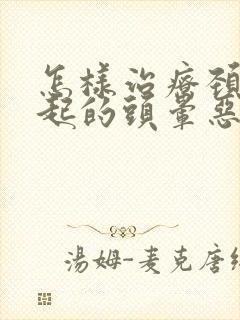 怎樣治療頚
起的頭暈惡
湯姆-麦克唐